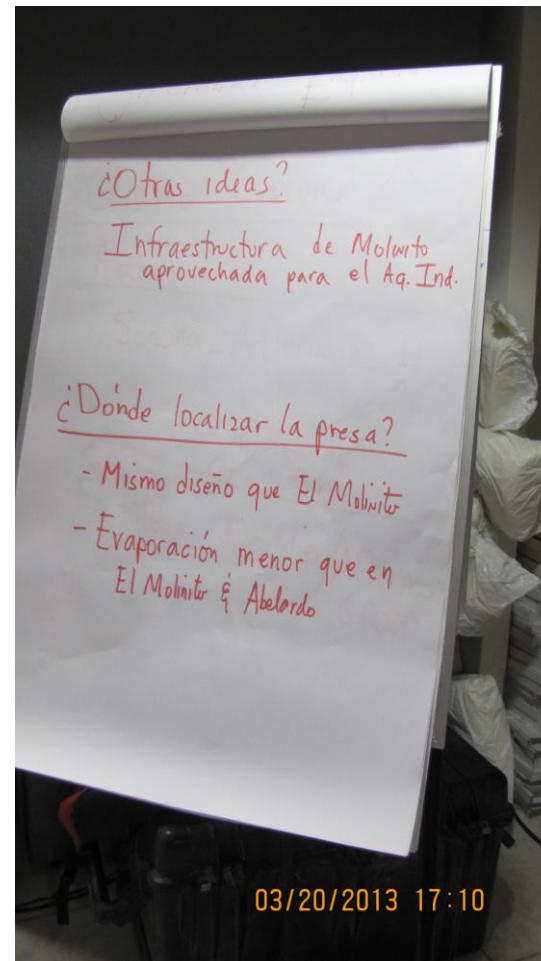 ¿Otras ideas?
Infraestructura de Molinito
aprovechada para el Aq. Ind.
¿Dónde localizar la presa?
- Mismo diseño que El Molinito
- Evaporación menor que en
El Molinito & Abelardo
03/20/2013 17:10